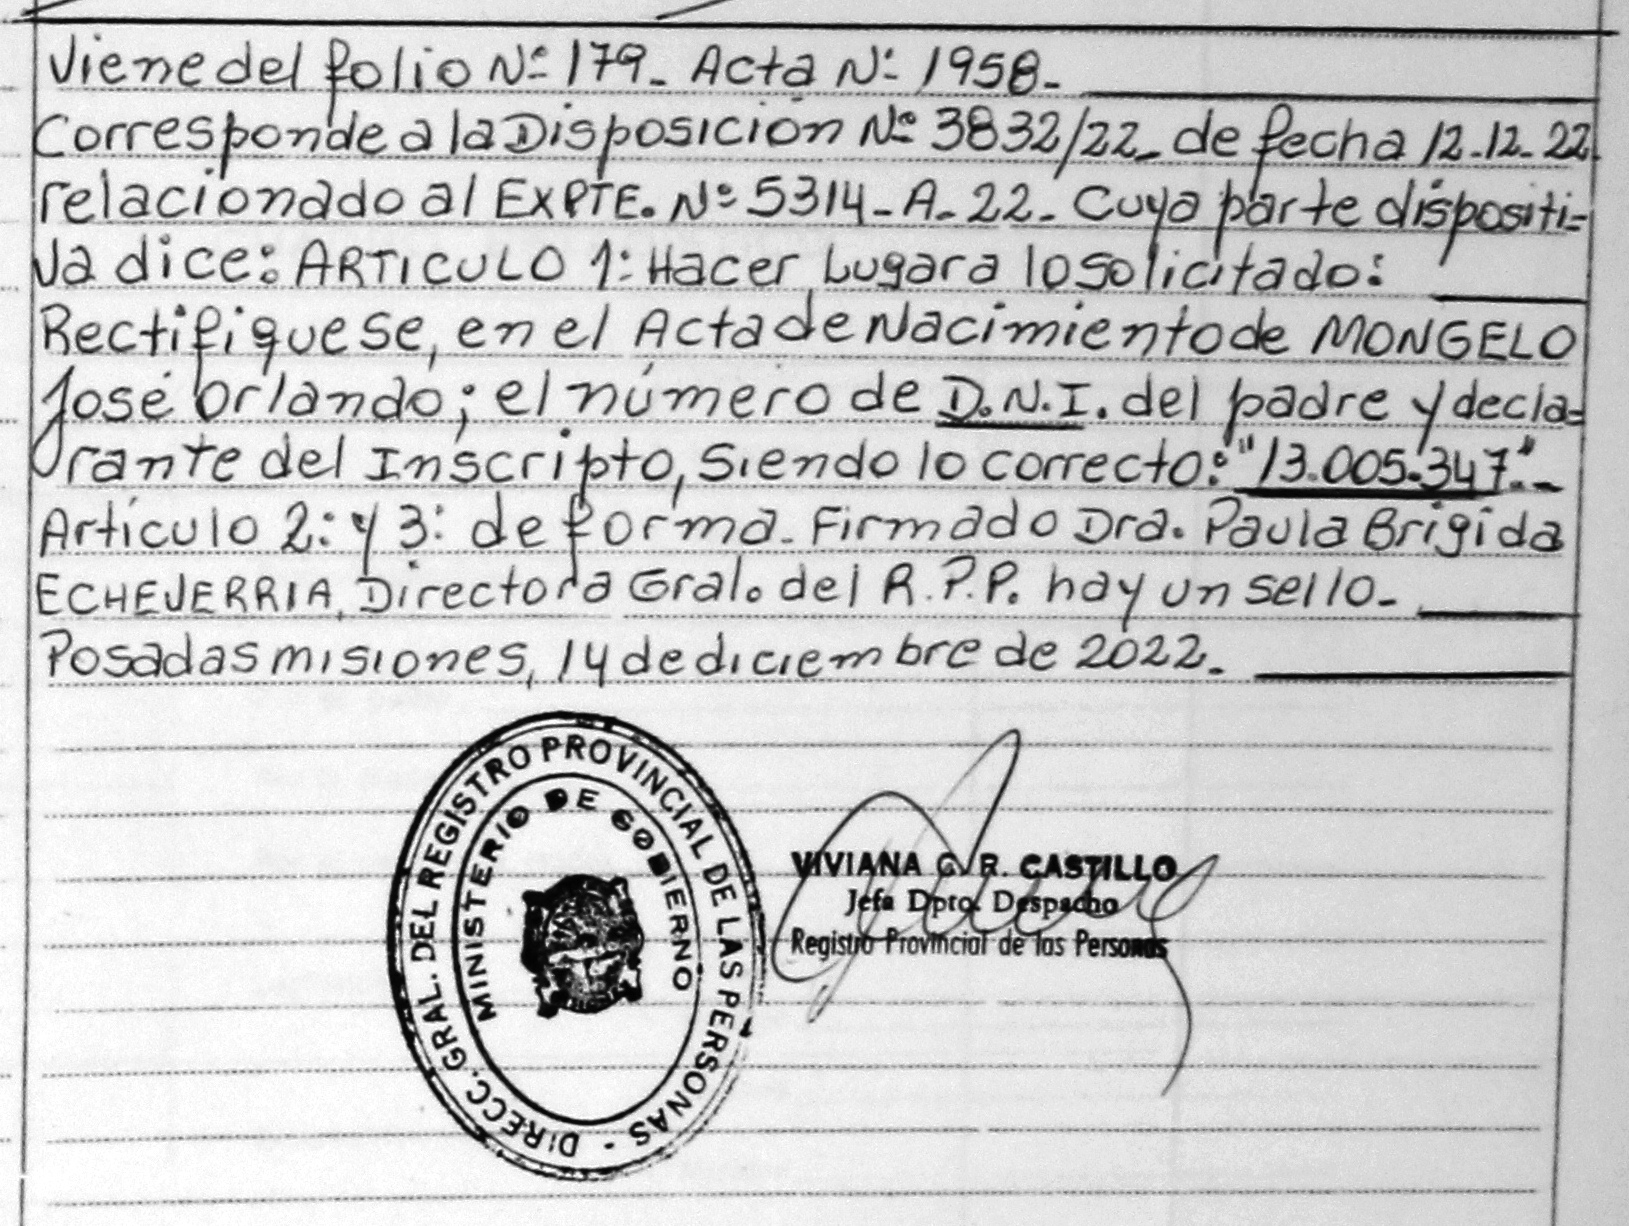 Viene del folio Nº 179_ Acta Nº 1958_
Corresponde a la Disposición Nº 3832/22_ de fecha 12.12.22
relacionado al EXPTE. Nº 5314_A_22_ Cuya parte dispositi=
va dice: ARTICULO 1: Hacer Lugar a lo solicitado:
Rectifiquese, en el Acta de Nacimiento de MONGELO
José Orlando; el número de D.N.I. del padre y decla=
rante del Inscripto, siendo lo correcto: "13.005.347"._
Artículo 2: y 3: de forma_ Firmado Dra. Paula Brigida
ECHEVERRIA, Directora Gral. del R.P.P. hay un sello_
Posadas misiones, 14 de diciembre de 2022_
DIRECC. GRAL. DEL REGISTRO PROVINCIAL DE LAS PERSONAS -
MINISTERIO DE GOBIERNO
VIVIANA G. R. CASTILLO
Jefa Dpto. Despacho
Registro Provincial de las Personas